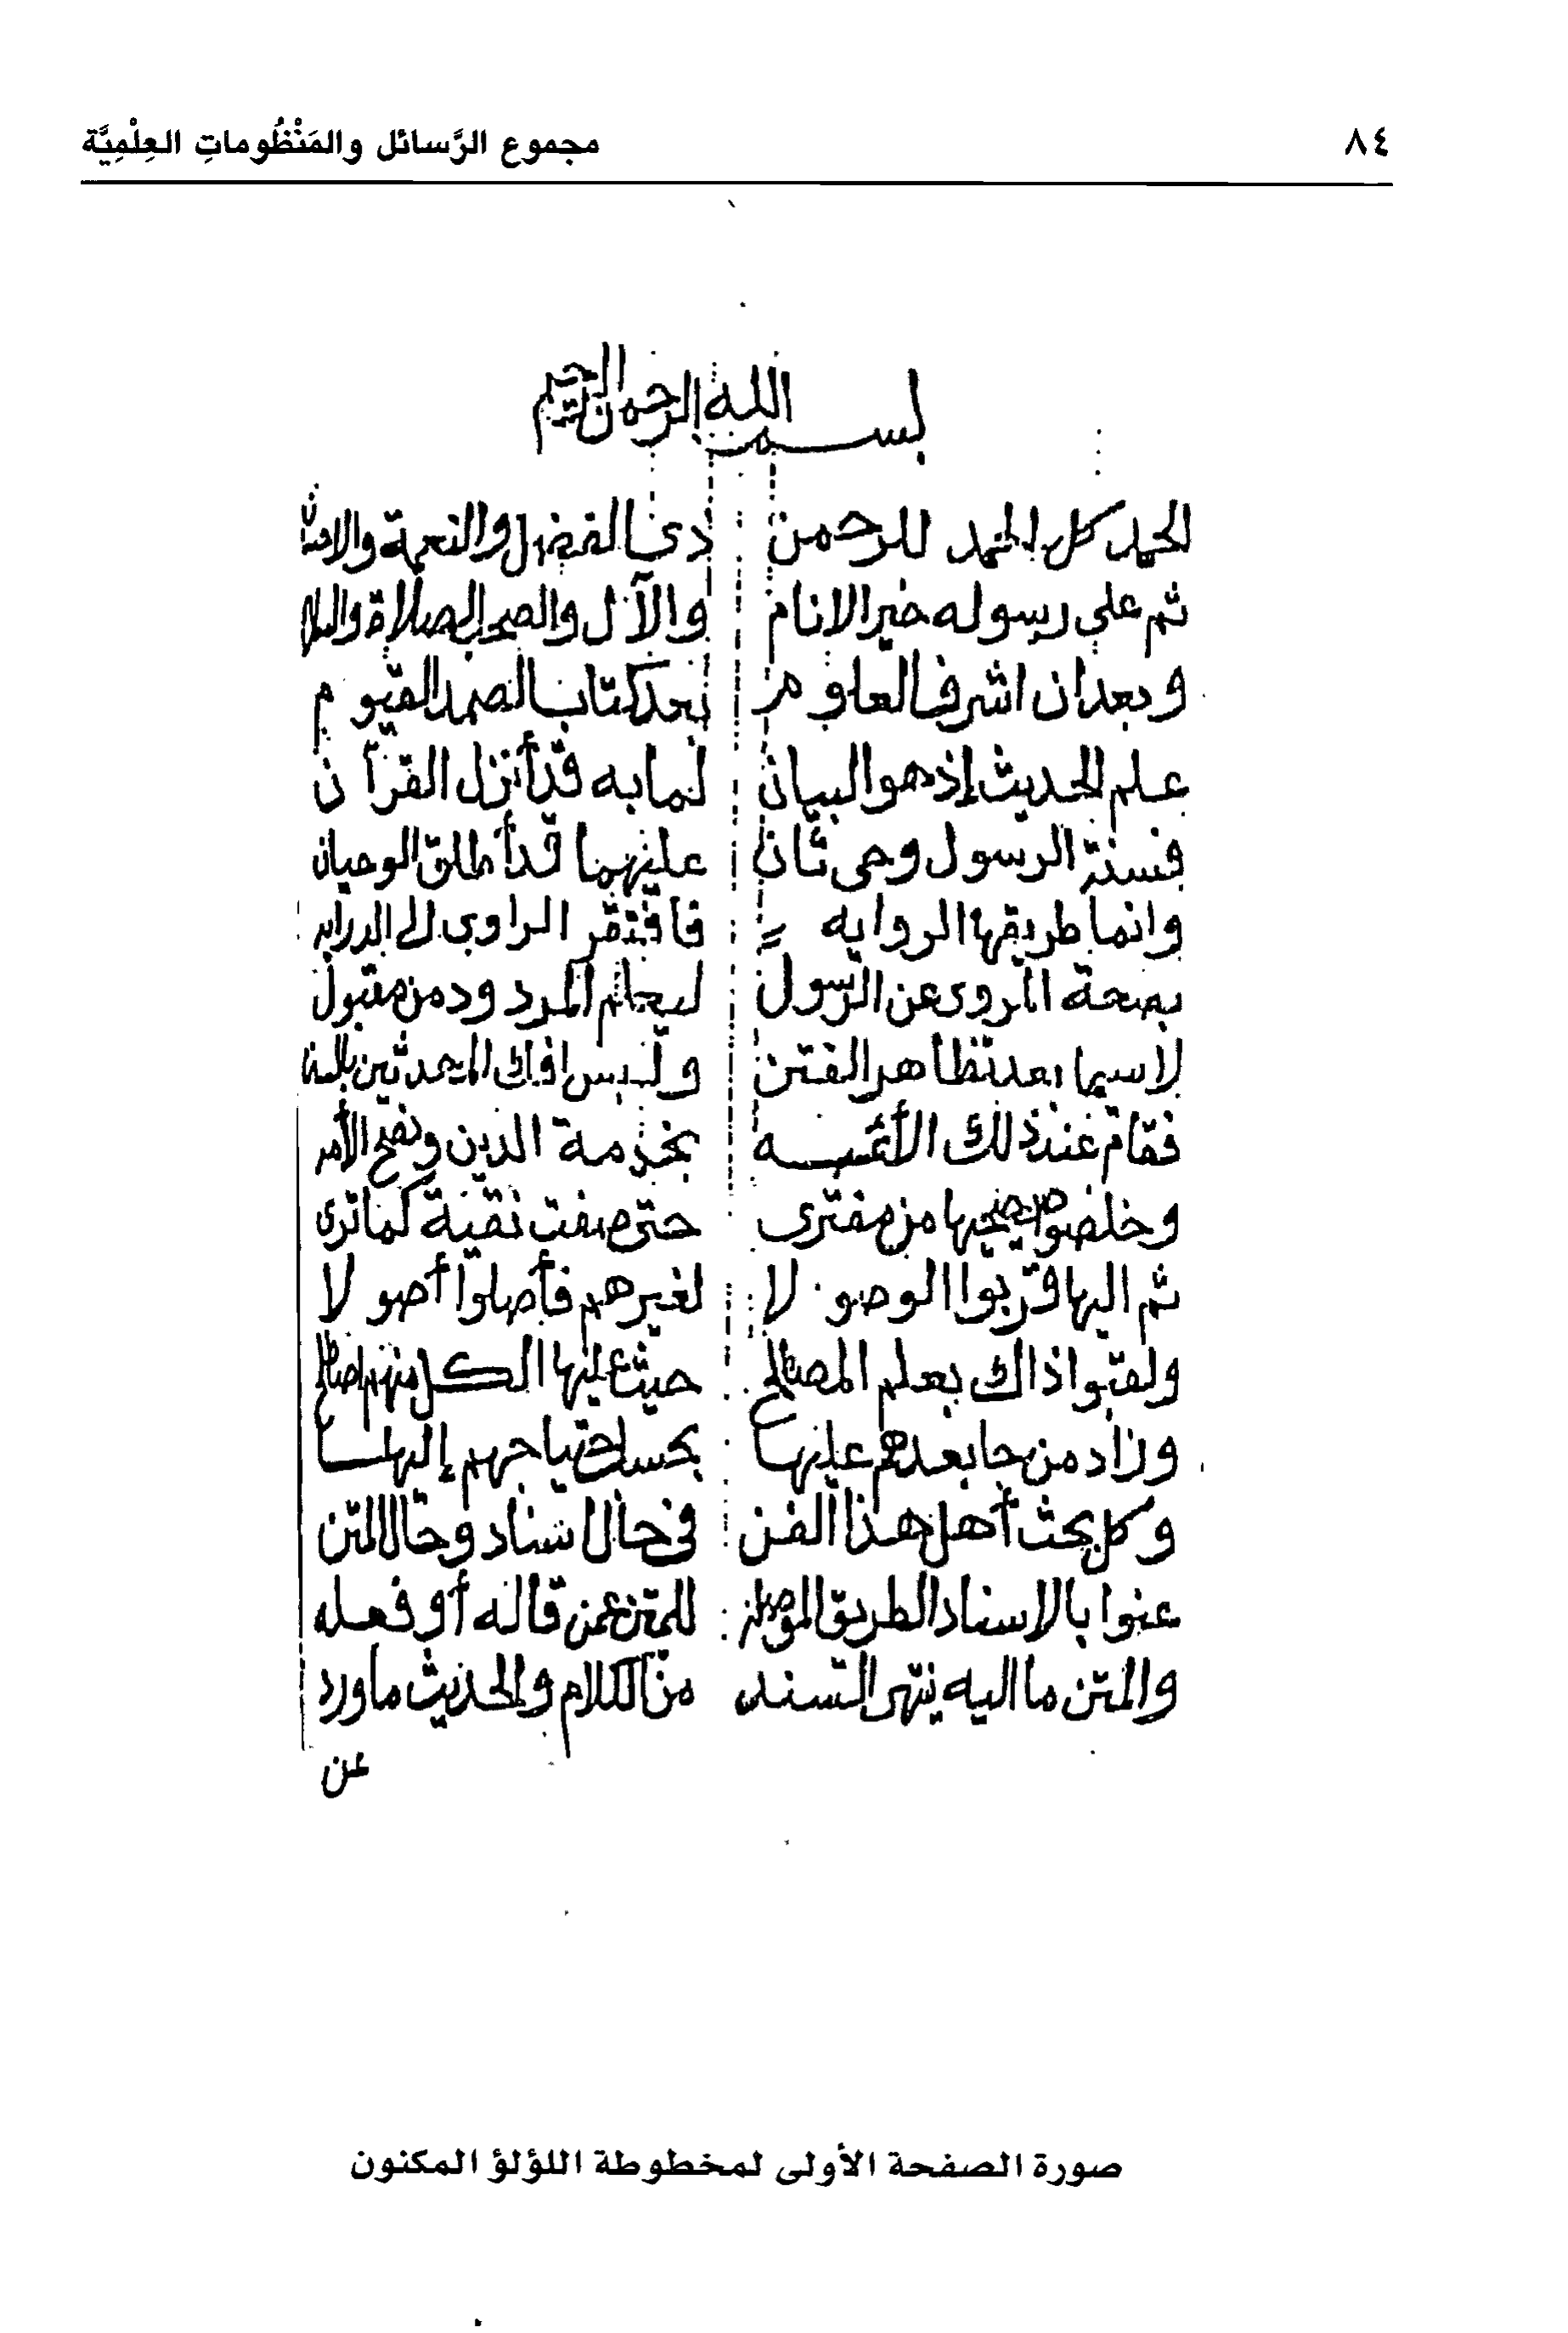 ٨٤ مجموع الرَّسائل والمَنْظُوماتِ العِلْمِيَّة
بسم الله الرحمن الرحيم
الحمد كل الحمد للرحمن ذي الفضل والنعمة والاحسان
ثم على رسوله خير الانام والآل والصحب الصلاة والسلام
وبعد ان اشرف العلوم بعد كتاب الصمد القيوم
علم الحديث إذ هو البيان لما به قد أنزل القرآن
فسنة الرسول وحي ثان عليهما قد أطلق الوحيان
وانما طريقها الروايه فافتقر الراوي الى الدرايه
بصحة المروي عن الرسول ليعلم المردود من مقبول
لا سيما بعد تظاهر الفتن ولبس افك المحدثين بالسنن
فقام عند ذلك الأئمه بخدمة الدين ونصح الأمه
وخلصوا صحيحها من مفترى حتى صفت نقية كما ترى
ثم اليها قربوا الوصولا لغيرهم فأصلوا أصولا
ولقبوا ذاك بعلم المصطلح حيث عليها الكل منهم اصطلح
وزاد من جا بعدهم عليها بحسب احتياجهم إليها
وكل بحث أهل هذا الفن في حال اسناد وحال المتن
عنوا بالاسناد الطريق الموصله للمتن عمن قاله أو فعله
والمتن ما اليه ينتهي السند من الكلام والحديث ما ورد
عن
صورة الصفحة الأولى لمخطوطة اللؤلؤ المكنون